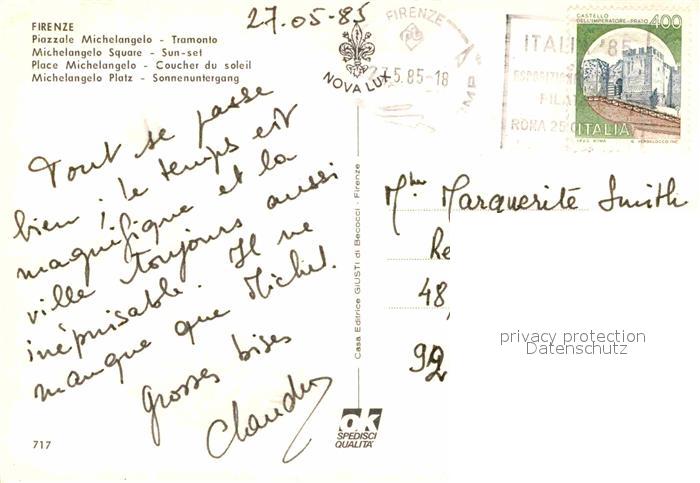 27.05-85
FIRENZE
Piazzale Michelangelo - Tramonto
Michelangelo Square - Sun-set
Place Michelangelo - Coucher du soleil
Michelangelo Platz - Sonnenuntergang
NOVA LUX
FIRENZE
5.85-18
ITALIA '85
ROMA 25
CASTELLO
DELL'IMPERATORE - PRATO
400
ITALIA
Tout se passe
bien ; le temps est
magnifique et la
ville toujours aussi
inépuisable. Il ne
manque que Michel.
Grosses bises
Casa Editrice GIUSTI di Becocci - Firenze
Marguerite Smith
Re
48,
92
privacy protection
Datenschutz
717
ok
SPEDISCI
QUALITA'